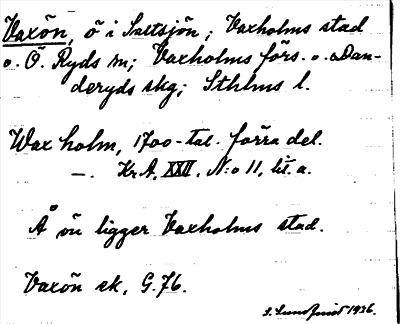 Vaxön, ö i Saltsjön; Vaxholms stad
o. Ö. Ryds sn; Vaxholms förs. o. Dan-
deryds skg; Sthlms l.
Wax holm, 1700-tal. förra del.
—. Kr A, XXII, N:o 11, lit. a.
Å ön ligger Vaxholms stad.
Vaxön sk, G.76.
1936.